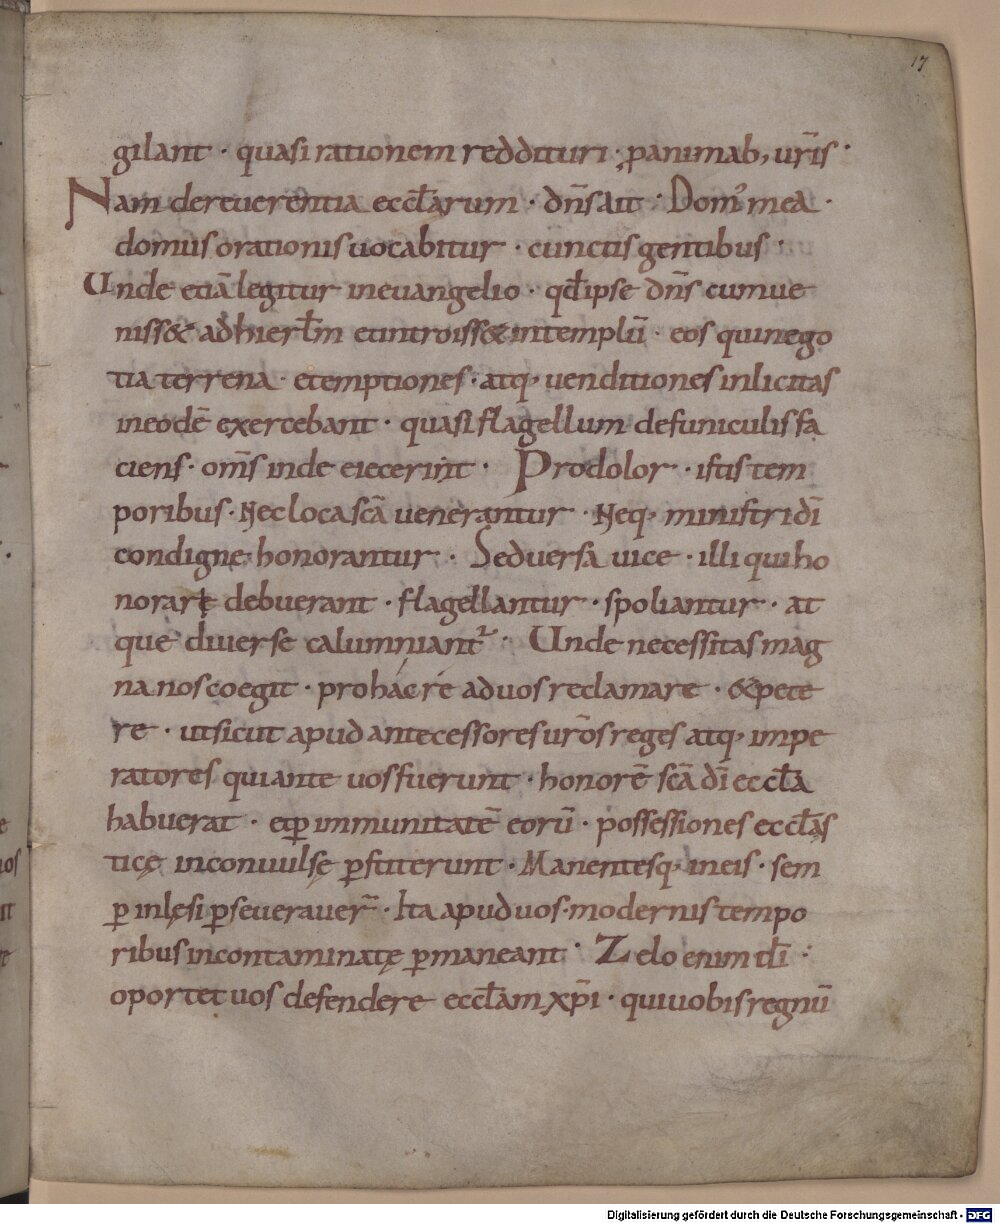 17
gilant · quasi rationem reddituri · p animab; ur̄is ·
Nam dereuerentia eccl̄arum · dn̄s ait · Dom' mea ·
domus orationis uocabitur · cunctis gentibus ·
Unde etiā legitur ineuangelio · qđ ipse dn̄s cumue
niss& adhierl̄m etintroiss& intemplū · eos quinego
tia terrena · etemptiones · atq; uenditiones inlicitas
ineodē exercebant · quasi flagellum defuniculis fa
ciens · om̄s inde eiecerint · Prodolor · istis tem
poribus · Nec loca sc̄a uenerantur · Neq; ministri dī
condigne honorantur · Sed uersa uice · illi qui ho
norare debuerant · flagellantur · spoliantur · at
que diuerse calumniant² · Unde necessitas mag
na nos coegit · pro hác ré ad uos reclamare · & pete
re · ut sicut apud antecessores ur̄os reges atq; impe
ratores qui ante uos fuerunt · honorē sc̄a dī eccl̄a
habuerat · et ꝑ immunitatē eorū · possessiones eccl̄as
ticę inconuulsę ꝑstiterunt · Manentesq; in eis · sem
ꝑ inlęsi ꝑseuerauer̄ · Ita apud uos · modernis tempo
ribus incontaminatę ꝑmaneant · Zelo enim dī ·
oportet uos defendere eccl̄am xp̄i · qui uobis regnū
Digitalisierung gefördert durch die Deutsche Forschungsgemeinschaft - DFG